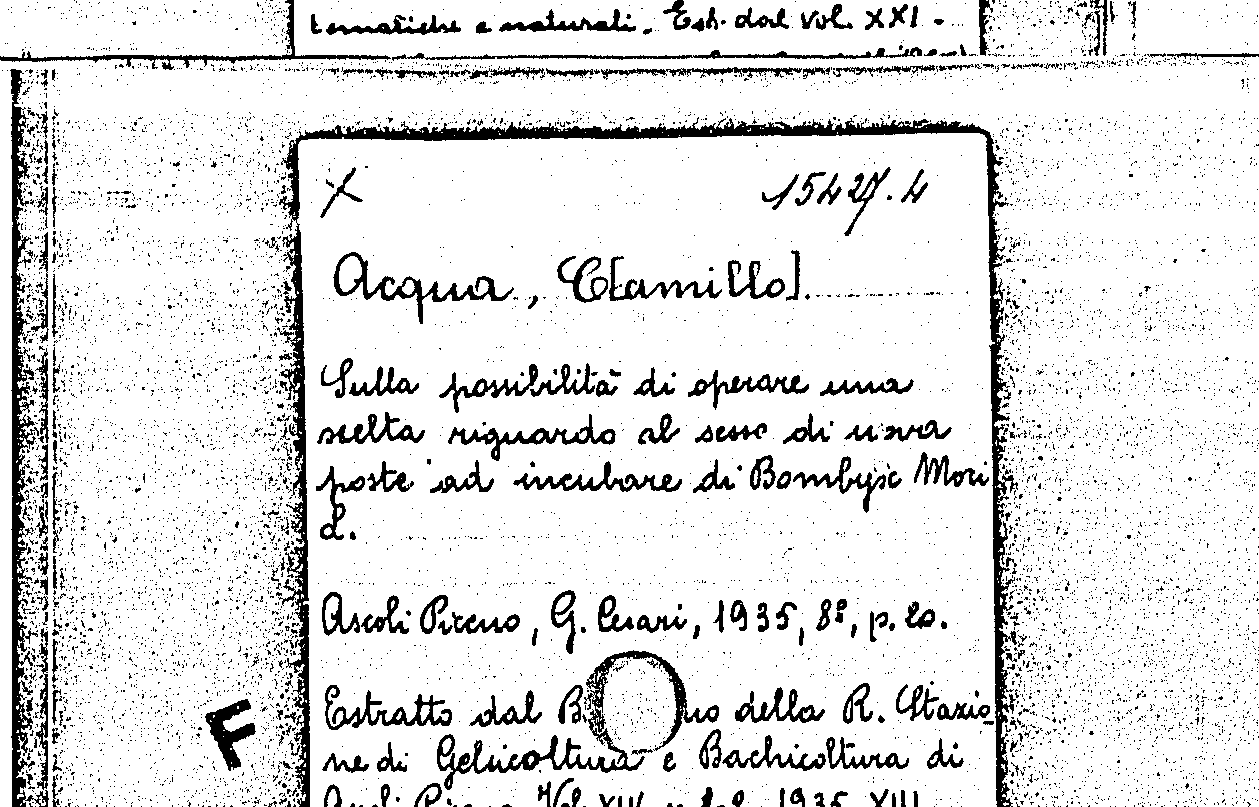 tematiche e naturali. Est. dal vol. XXI -
X
15427.4
Acqua, C[amillo].
Sulla possibilità di operare una
scelta riguardo al sesso di uova
poste ad incubare di Bombyx Mori
L.
Ascoli Piceno, G. Cesari, 1935, 8º, p. 20.
Estratto dal B no della R. Stazio_
ne di Gelsicoltura e Bachicoltura di
F
Ascoli Piceno, Vol. XIV 1935 XIII